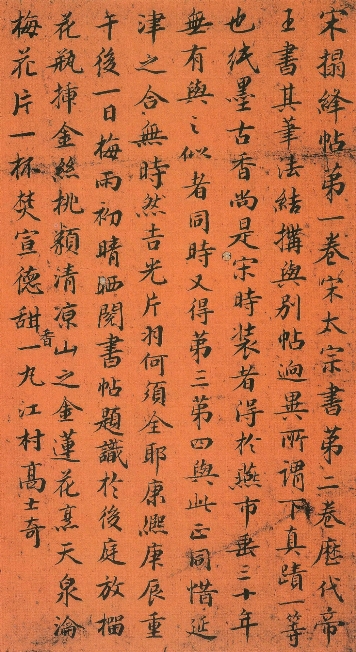 宋搨絳帖第一卷宋太宗書第二卷歷代帝
王書其筆法結搆與別帖逈異所謂下真蹟一等
也紙墨古香尚是宋時裝者得於燕市垂三十年
無有與之似者同時又得第三第四與此正同惜延
津之合無時然吉光片羽何須全耶康熙庚辰重
午後一日梅雨初晴晒閱書帖題識於後庭放榴
花瓶揷金絲桃纇清涼山之金蓮花烹天泉瀹
梅花片一杯焚宣德甜香一丸江村高士奇